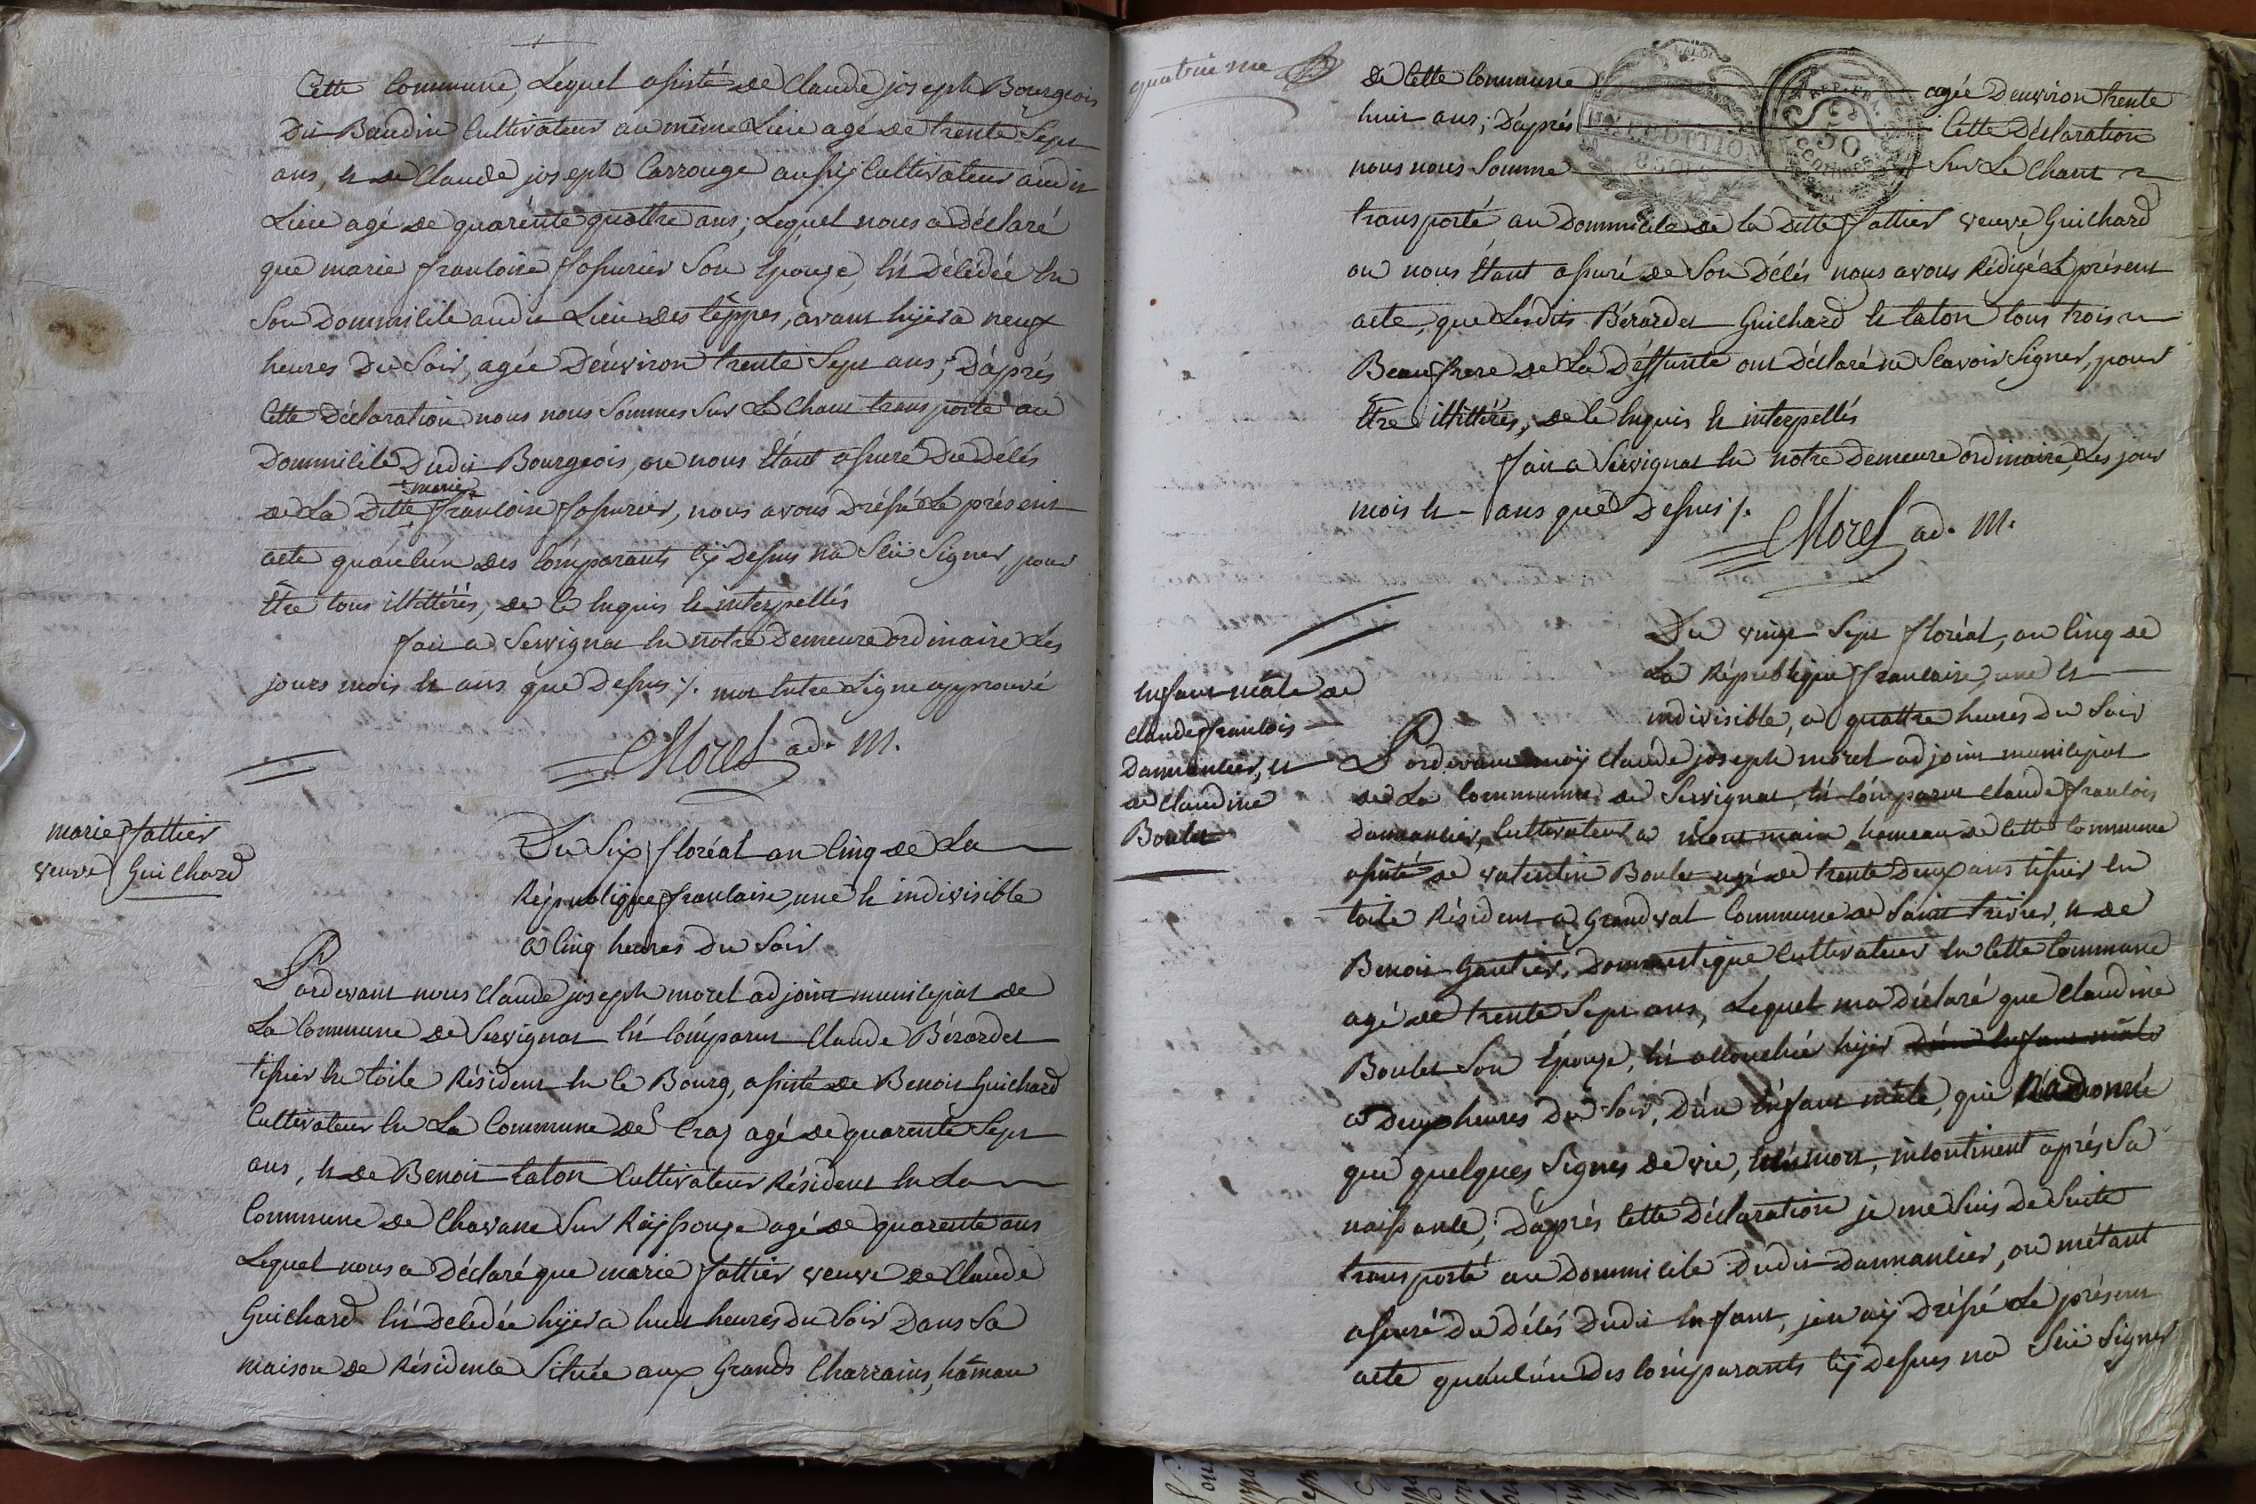 Cette Commune, Lequel assisté de Claude joseph Bourgeois
Dit Baudin Cultivateur au même Lieu agé de trente Sept
ans, et de Claude joseph Carronge aussij Cultivateur audit
Lieu agé de quarénte quattre ans; Lequel nous a Déclaré
que marie francoise son Épouze, Est Décédée En
Son Dommicile audit Lieu des têppes, avant hijer a neuf
heures Du Soir, agée D'énviron trente Sept ans; D'áprés
Cette Déclaration nous nous Sommes Sur Le Chant transporté au
Dommicile Dudit Bourgeois, ou nous Étant assuré Du Délés
marie
de La Ditte francoise, nous avons Dréssé Le présent
acte qu'aucún des Comparants Cij Dessus na Sçü Signer, pour
Être tous illittérés, de Ce Enquis Et interpellés
fait a Servignat En notre Demeure ordinaire Les
jours mois Et ans que Dessus ./. mot Entre Ligne approuvé
CMorel ad. M.
marie fattier
veuve Guichard
Du Six floréal an Cinq de La
République francaise, une Et indivisible
a Cinq heures Du Soir
Pardevant nous Claude joseph morel adjoint municipal de
La Commune de Servignat Est Comparut Claude Bérardet
tissier En toile Résident En Ce Bourg, assisté de Benoit Guichard
Cultivateur En La Commune de Craz agé de quarente Sept
ans, Et de Benoit Caton Cultivateur Résident En La
Commune de Chavane Sur Raijssouze agé de quarente ans
Lequel nous a Déclaré que marie fattier veuve de Claude
Guichard Est Decedée hijer a huit heures Du Soir Dans Sa
maison de Résidence Située aux Grands Charrains, hâmau
quatrieme
de Cette Commune agée D'environ trente
huit ans; D'áprés Cette Déclaration
nous nous Somme Sur Le Chant
transporté au Dommicile de la Ditte fattier veuve Guichard
ou nous Étant assuré de Son Délés nous avons Rédigé Le présent
acte, que Lesdits Bérardet Guichard Et Caton tous trois
Beaufrere de La Déffunte ont Déclaré ne Scavoir Signer, pour
Être illittérés, de Ce Enquis Et interpellés
fait a Servignat En notre Demeure ordinaire, Les jour
mois Et ans que Dessus ./.
CMorel ad. M.
Enfant mâle de
Claude francois
Dannancier, Et
de Claudine
Boulet
Du vingt Sept floréal, an Cinq de
La République francaise, une Et
indivisible, a quattre heures Du Soir
Pardevant moij Claude joseph morel adjoint municipal
de La Commune de Servignat, Est Comparut Claude francois
Dannancier, Cultivateur a hameau de Cette Commune
assisté de valentin Boulet agé de trente Deux ans tissier En
toile Résident a Grandval Commune de Saint trivier, Et de
Benoit Gautier, Dommestique Cultivateur En Cette Commune
agé de trente Sept ans, Lequel ma Déclaré que Claudine
Boulet Son Épouze, Est accouchée hijer D'un Enfant mâle
a Deux heures Du Soir, D'ún Enfant mâle, qui N'a Donné
que quelques Signes de vie, Est mort, incontinent aprés Sa
naissance; D'áprés Cette Déclaration je me Suis De Suite
transporté au Dommicile Dudit Dannancier, ou m'étant
assuré Du Délés Dudit Enfant, j'en aij Dréssé Le présent
acte qu'aucún Des Comparants Cij Dessus na Sçü Signer